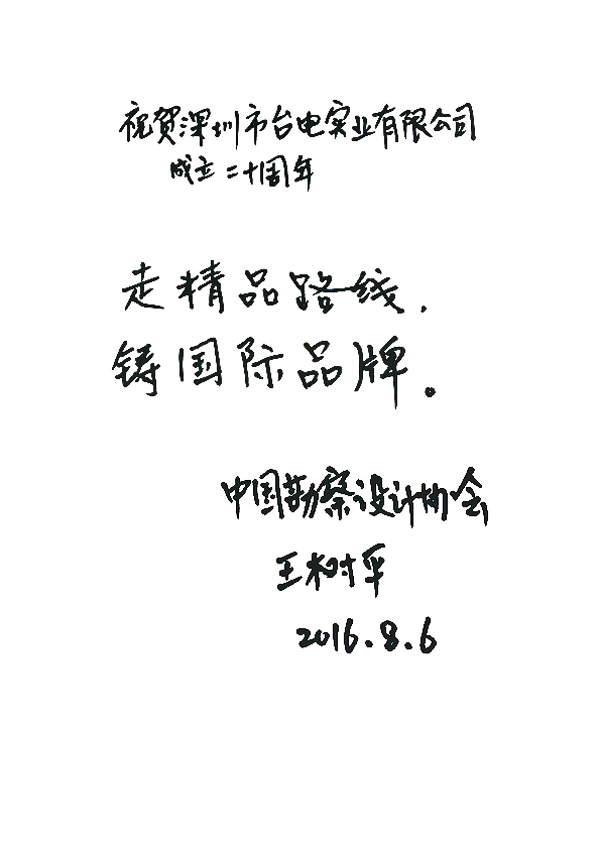 祝贺深圳市台电实业有限公司
成立二十周年
走精品路线，
铸国际品牌。
中国勘察设计协会
王树平
2016.8.6